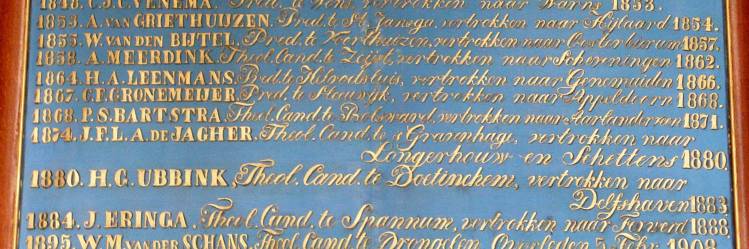 1848. C.J.C. VENEMA. Pred. te vertrokken naar 1853.
1853. A. VAN GRIETHUIJZEN. Pred. te St. Jansga, vertrokken naar Hijlaard 1854.
1855. W. VAN DEN BIJTEL. Pred. te vertrokken naar Oosterburum 1857.
1858. A. MEERDINK. Theol. Cand. te Zeijst, vertrokken naar Scheveningen 1862.
1864. H. A. LEENMANS. Pred. te Hellevoetsluis, vertrokken naar Genemuiden 1866.
1867. C.F. GRONEMEIJER. Pred. te Sleeuwijk, vertrokken naar Appeldoorn 1868.
1868. P. S. BARTSTRA. Theol. Cand. te Bolsward, vertrokken naar Aarlanderveen 1871.
1874. J.F.L.A. DE JAGHER. Theol. Cand. te s Gravenhage, vertrokken naar
Longerhouw en Schettens 1880.
1880. H.G. UBBINK. Theol. Cand. te Doetinchem, vertrokken naar
Delfshaven 1883
1884. J. ERINGA. Theol. Cand. te Spannum, vertrokken naar Ferwerd 1888
1895. W.M. VAN DER SCHANS. Theol. Cand. te Overleden 5